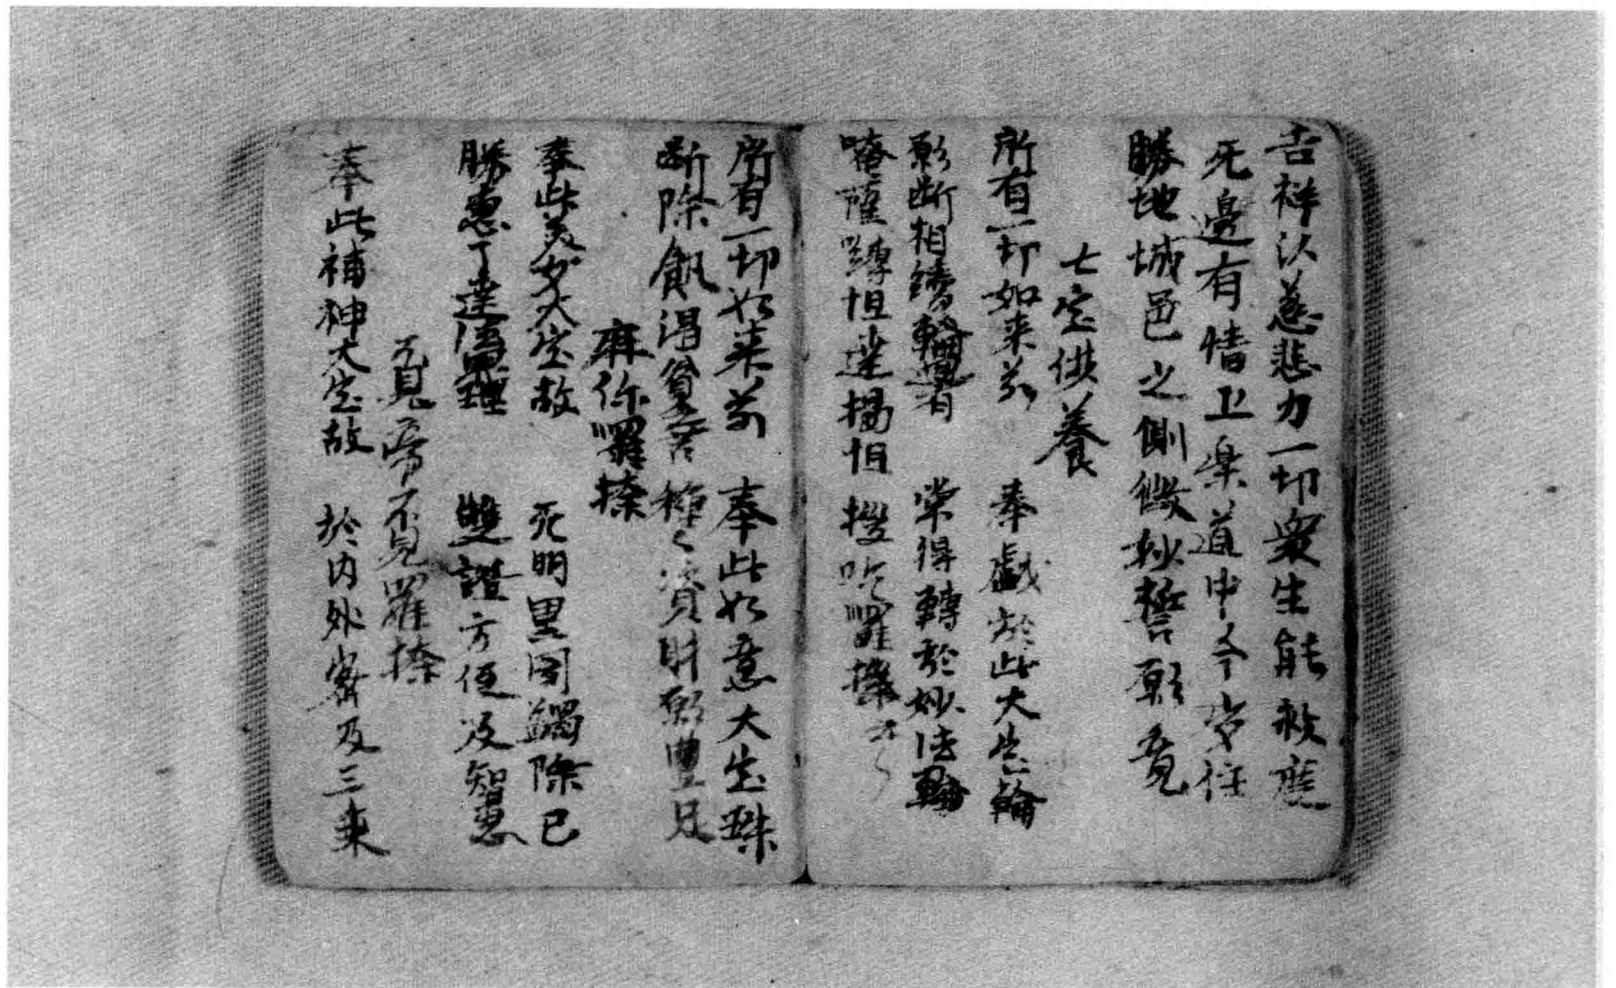 吉祥以慈悲力一切衆生能救應
无邊有情卫樂道中令安住
勝地城邑之側微妙誓願竟
七宝供養
所有一切如来前 奉献於此大宝輪
願断相續輪𢌞有 常得轉於妙法輪
唵薩轉怛達揭怛 拶吃囉捺
所有一切如来前 奉此如意大宝珠
断除飢渇貧苦種〻 資財願豊足
麻你囉捺
奉此美女大宝故 无明黒闇蠲除已
勝惠了達法界理 雙證方便及智惠
不見帝不見羅捺
奉此補神大宝故 於内外密及三乘